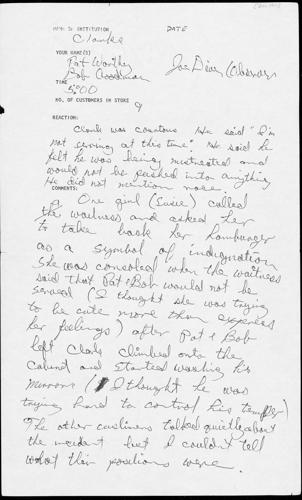 NAME OF INSTITUTION DATE
Clarks
YOUR NAME(S)
Pat Worthy Joe Diaz (Observer)
Bob Goodman
TIME
5:00
NO. OF CUSTOMERS IN STORE
9
REACTION:
Clerk was courteous. He said "I'm
not serving at this time". He said he
felt he was being mistreated and
would not be pushed into anything
He did not mention race.
COMMENTS:
One girl (Susie) called
the waitress and asked her
to take back her hamburger
as a symbol of indignation
She was consoled when the waitress
said that Pat & Bob would not be
served (I thought she was trying
to be cute more than express
her feelings) after Pat & Bob
left Clerk climbed onto the
cabinet and started washing his
mirrors (I thought he was
trying hard to control his temper)
The other customers talked quietly about
the incident but I couldn't tell
what their positions were.